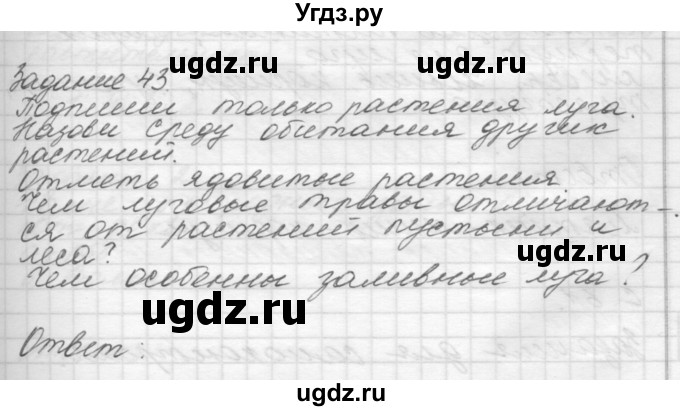 Угдз.ру
Задание 43.
Подпиши только растения луга.
Назови среду обитания других
растений.
Отметь ядовитые растения
Чем луговые травы отличают-
ся от растений пустыни и
леса?
Чем особенны заливные луга?
Ответ:
ugdz.ru
ugdz.ru
ugdz.ru
ugdz.ru
ugdz.ru
ugdz.ru
ugdz.ru